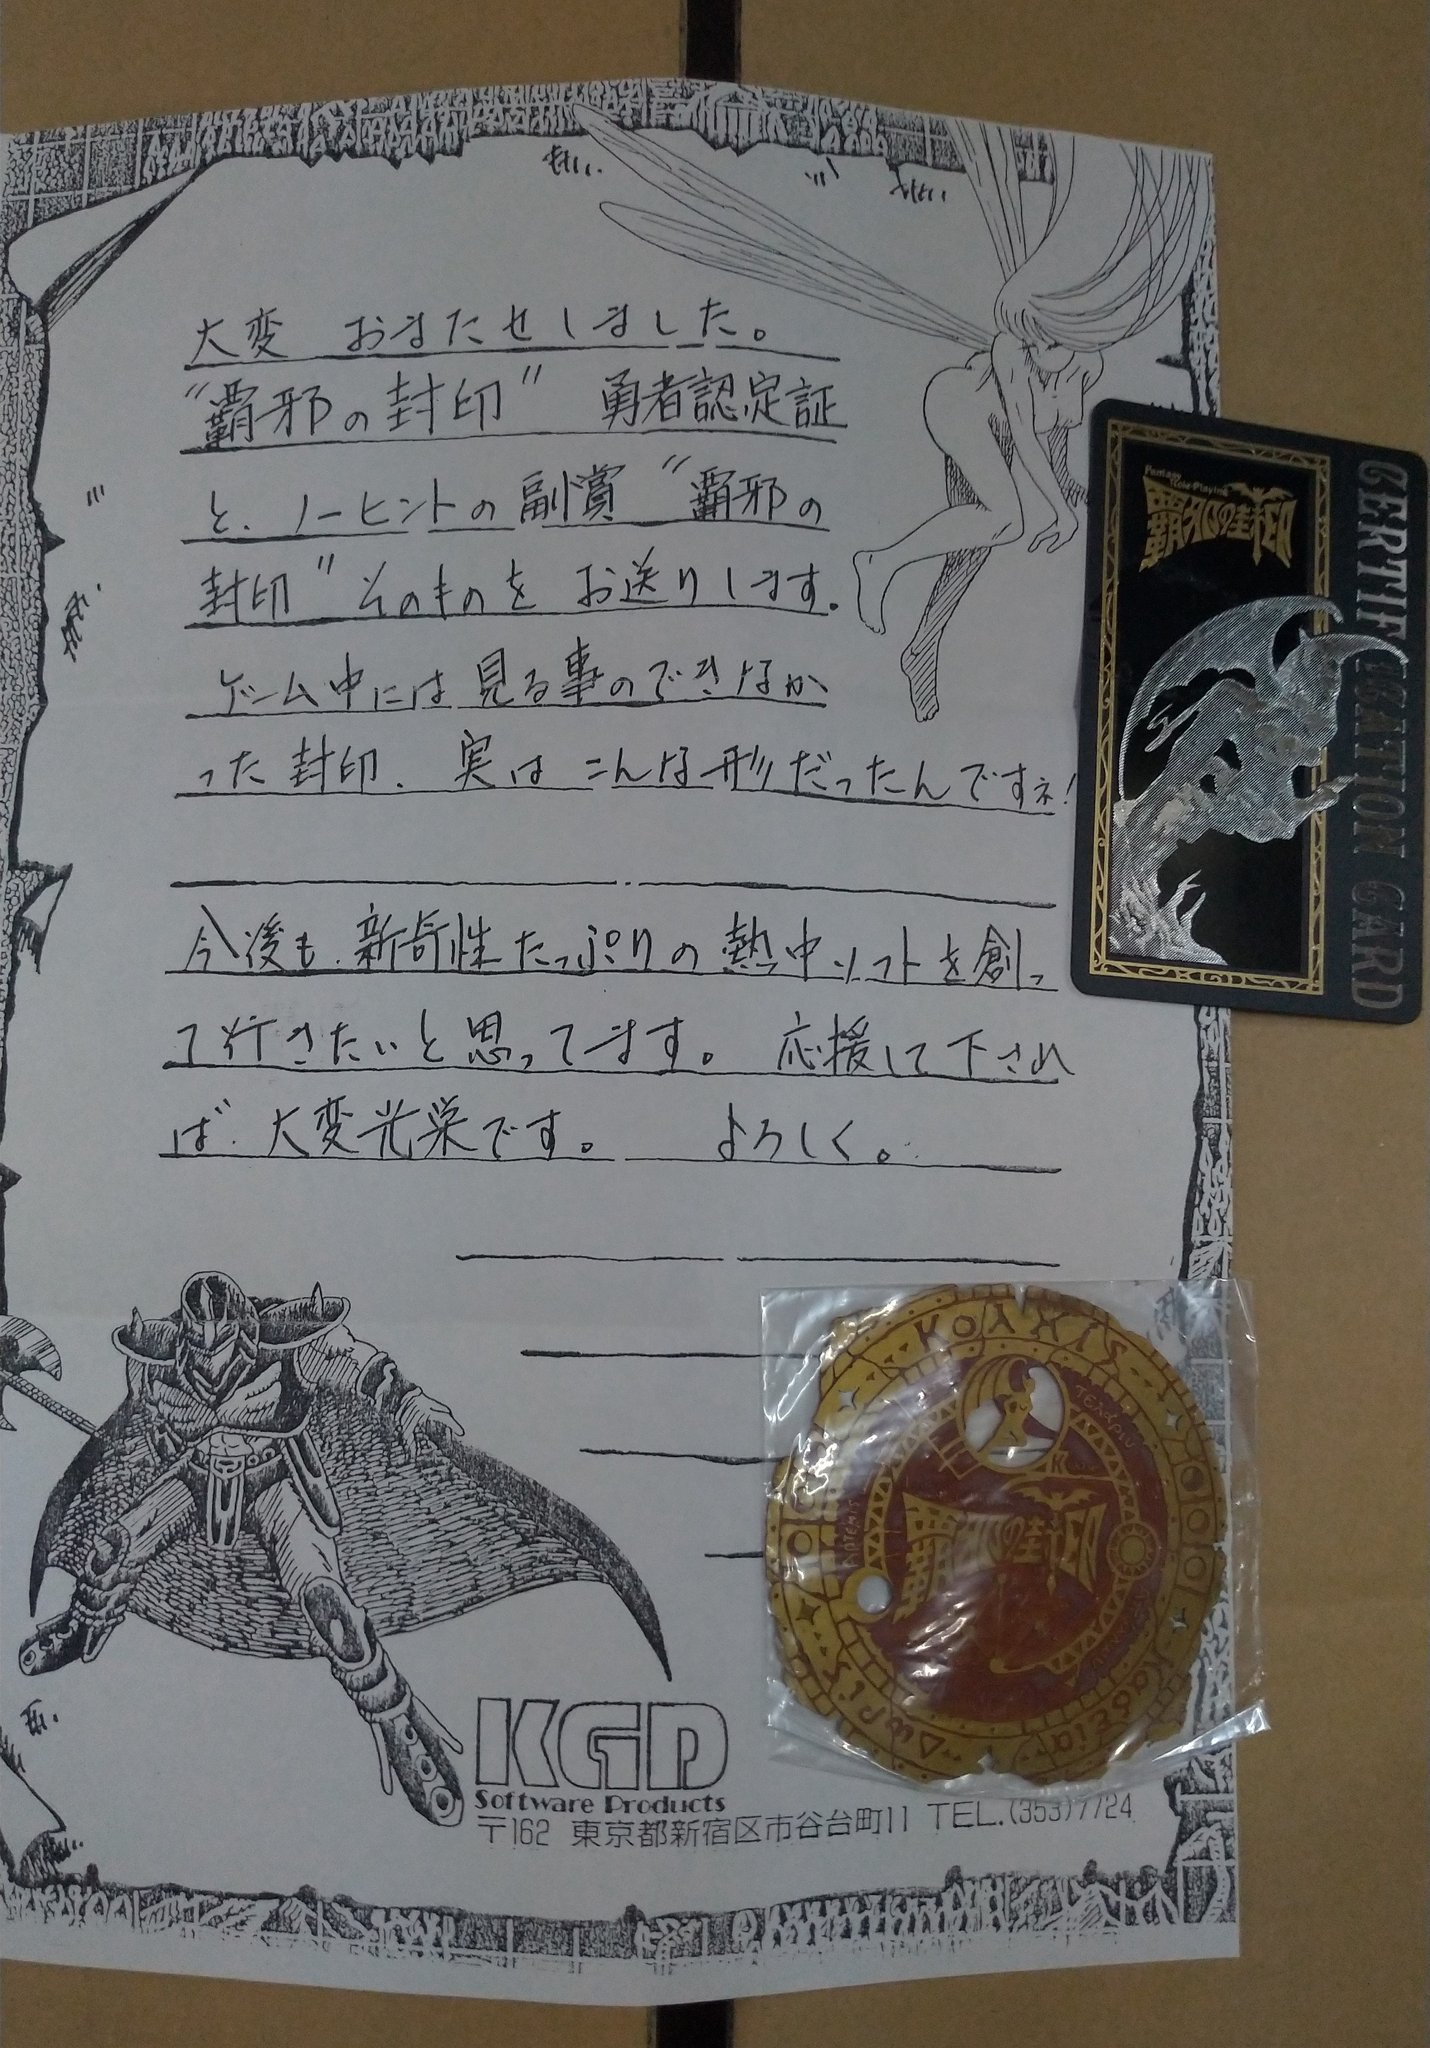 大変 おまたせしました。
"覇邪の封印" 勇者認定証
と、ノーヒントの副賞 "覇邪の
封印" そのものを お送りします。
ゲーム中には見る事のできなか
った封印、実は こんな形だったんですネ!
今後も、新奇性たっぷりの熱中ソフトを創っ
て行きたいと思ってます。 応援して下され
ば、大変光栄です。 よろしく。
KGD
Software Products
〒162 東京都新宿区市谷台町11 TEL.(353)7724
Fantasy Role Playing
覇邪の封印
CERTIFICATION CARD
覇邪の封印